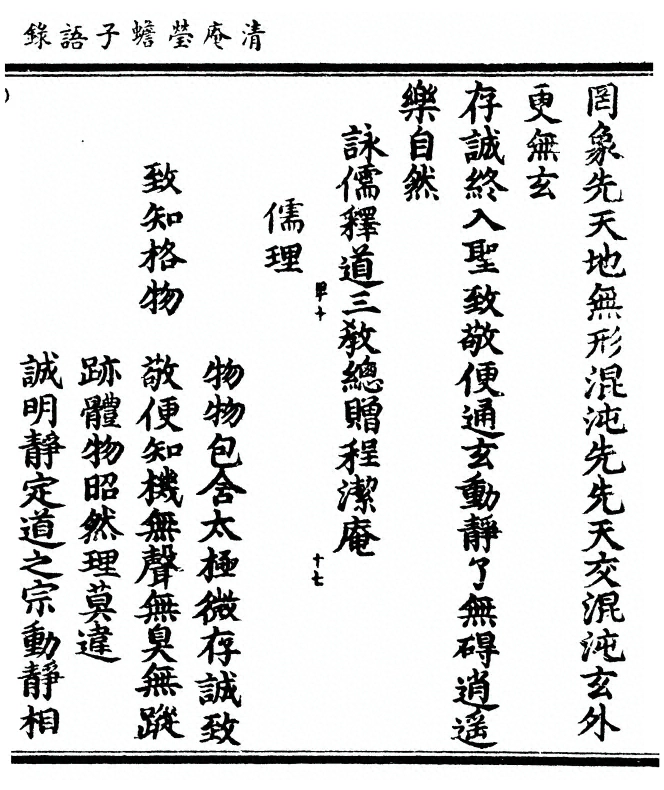 清庵瑩蟾子語錄
罔象先天地無形混沌先先天交混沌玄外
更無玄
存誠終入聖致敬便通玄動靜了無碍逍遥
樂自然
詠儒釋道三教總贈程潔庵
十七
儒理
物物包含太極微存誠致
致知格物
敬便知機無聲無臭無蹤
跡體物昭然理莫違
誠明靜定道之宗動靜相